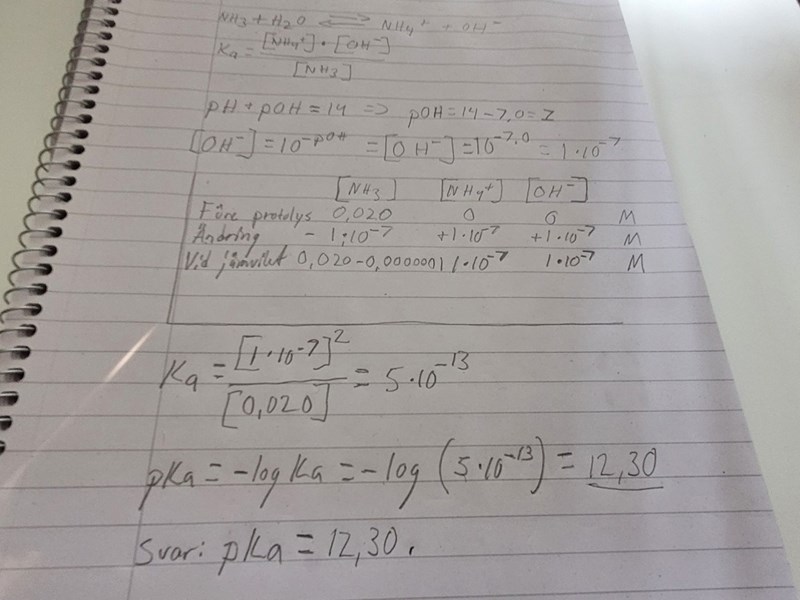 NH3 + H2O ⇌ NH4+ + OH-
Ka = [NH4+] · [OH-] / [NH3]
pH + pOH = 14 => pOH = 14 - 7,0 = 7
[OH-] = 10^-pOH = [OH-] = 10^-7,0 = 1·10^-7
[NH3] [NH4+] [OH-]
Före protolys 0,020 0 0 M
Ändring - 1·10^-7 +1·10^-7 +1·10^-7 M
Vid jämvikt 0,020-0,0000001 1·10^-7 1·10^-7 M
Ka = [1·10^-7]^2 / [0,020] = 5·10^-13
pKa = -log Ka = -log (5·10^-13) = 12,30
Svar: pKa = 12,30.